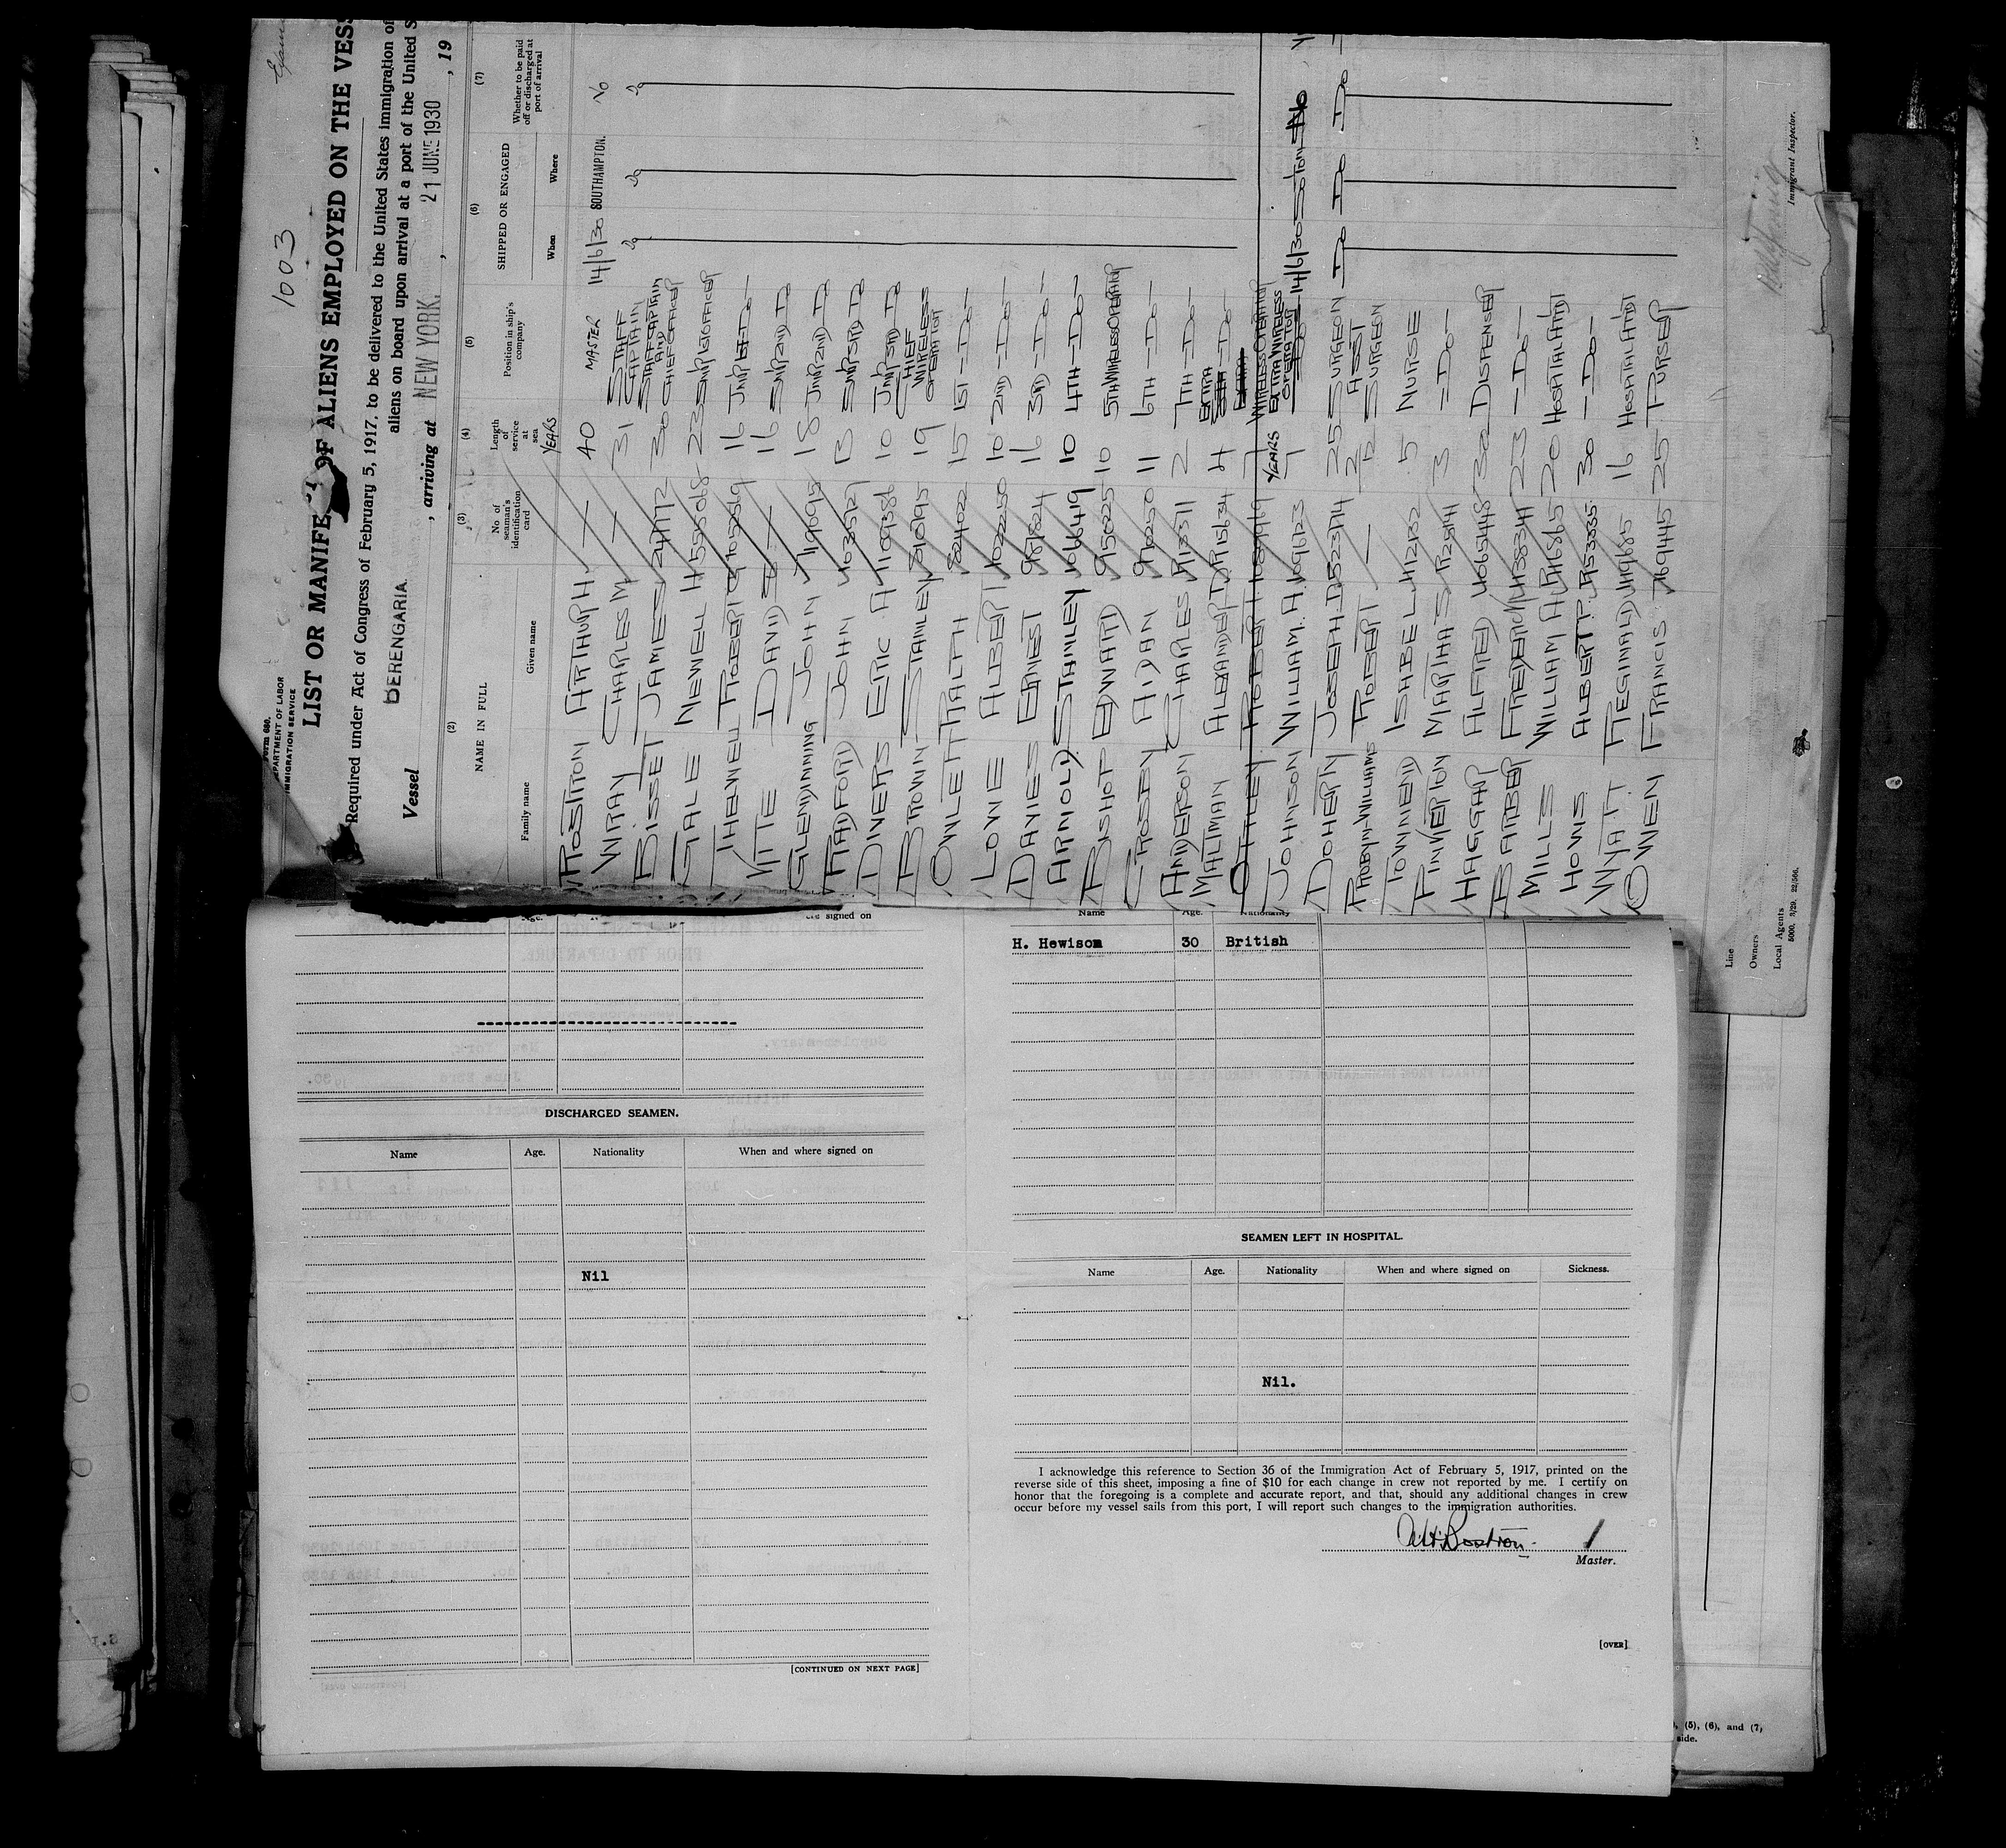 1003
Form 680.
DEPARTMENT OF LABOR
IMMIGRATION SERVICE
LIST OR MANIFEST OF ALIENS EMPLOYED ON THE VESS
Required under Act of Congress of February 5, 1917, to be delivered to the United States immigration of
aliens on board upon arrival at a port of the United S
Vessel BERENGARIA. , arriving at NEW YORK. , 21 JUNE 1930 , 19
(2) (3) (4) (5) (6) (7)
NAME IN FULL
Family name Given name
No of seaman's identification card
Length of service at sea
Position in ship's company
SHIPPED OR ENGAGED
When Where
Whether to be paid off or discharged at port of arrival
YEARS
ROSTRON ARTHUR H — 40 MASTER 14/6/30 SOUTHAMPTON. No
WRAY CHARLES M — 31 STAFF CAPTAIN Do Do Do
BISSET JAMES 30 STAFF CAPTAIN AND CHIEF OFFICER
GALE NEWELL H 555068 23 SNR 1ST OFFICER
THELWELL ROBERT G 16 JNR 1ST — Do —
WITTE DAVID 16 SNR 2ND Do
GLENDINNING JOHN 18 JNR 2ND Do
RADFORD JOHN 13 SNR 3RD Do
DIVERS ERIC A 1109386 10 JNR 3RD Do
BROWN STANLEY 19 CHIEF WIRELESS OPERATOR
OWLETT RALTH 15 1ST — Do —
LOWE ALBERT 10 2ND — Do —
DAVIES ERNEST 16 3RD — Do —
ARNOLD. STANLEY 1066419 10 4TH — Do —
BISHOP EDWARD 955025 10 5TH WIRELESS OPERATOR
CROSBY AIDAN 990250 11 6TH — Do —
ANDERSON CHARLES R13371 2 7TH — Do —
MALTMAN ALEXANDER D R15634 4 EXTRA — Do —
OTTLEY ROBERT 7 WIRELESS OPERATOR
JOHNSON WILLIAM. A. 1091673 YEARS 7 EXTRA WIRELESS OPERATOR 14/6/30 So'ton No
DOHERTY JOSEPH. D. 523714 25 SURGEON Do Do Do
ROBYN-WILLIAMS ROBERT — 2 ASST SURGEON
TOWNEND ISABEL 412132 5 NURSE
RIMMERTON MARTHA S R25614 3 — Do —
HAGGAR ALFRED 4065448 32 DISPENSER
BARBER FREDERICK 438341 23 — Do —
MILLS WILLIAM A R116865 20 HOSPITAL ATTDT
HOWS ALBERT P. R53335 30 — Do —
WYATT REGINALD 449685 16 HOSPITAL ATTDT
OWEN FRANCIS 769445 25 PURSER
Line
Owners
Local Agents
5000. 3/29. 22,566.
Immigrant Inspector.
Age. ere signed on
DISCHARGED SEAMEN.
Name Age. Nationality When and where signed on
Nil
[CONTINUED ON NEXT PAGE]
Name Age. Nationality
H. Hewison 30 British
SEAMEN LEFT IN HOSPITAL.
Name Age. Nationality When and where signed on Sickness.
Nil.
I acknowledge this reference to Section 36 of the Immigration Act of February 5, 1917, printed on the
reverse side of this sheet, imposing a fine of $10 for each change in crew not reported by me. I certify on
honor that the foregoing is a complete and accurate report, and that, should any additional changes in crew
occur before my vessel sails from this port, I will report such changes to the immigration authorities.
A. H. Rostron
Master.
[OVER]
, (5), (6), and (7,
side.